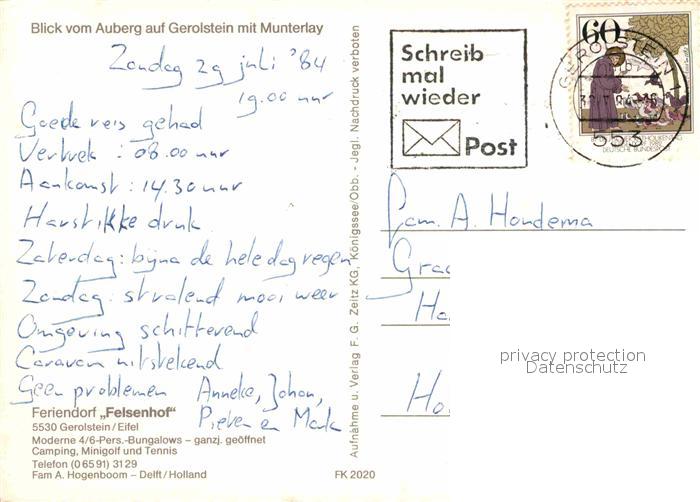 Blick vom Auberg auf Gerolstein mit Munterlay
Zondag 29 juli '84
19.00 uur
Goede reis gehad
Vertrek : 08.00 uur
Aankomst : 14.30 uur
Hartstikke druk
Zaterdag : bijna de hele dag regen
Zondag : stralend mooi weer
Omgeving schitterend
Caravan uitstekend
Geen problemen Anneke, Johan,
Pieter en Mark
Feriendorf „Felsenhof"
5530 Gerolstein/Eifel
Moderne 4/6-Pers.-Bungalows – ganzj. geöffnet
Camping, Minigolf und Tennis
Telefon (0 65 91) 31 29
Fam A. Hogenboom – Delft/Holland
FK 2020
Aufnahme u. Verlag F. G. Zeitz KG, Königssee/Obb. - Jegl. Nachdruck verboten
Schreib
mal
wieder
Post
GEROLSTEIN 1
553
60
DEUTSCHE BUNDESPOST
Fam. A. Hondema
Grac
Ha
Ho.
privacy protection
Datenschutz